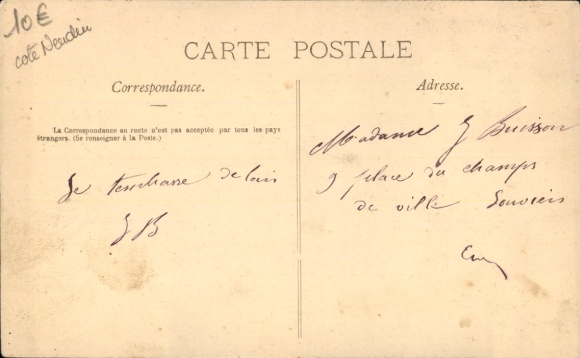 10€
cote Neudin
CARTE POSTALE
Correspondance.
Adresse.
La Correspondance au recto n'est pas acceptée par tous les pays
étrangers. (Se renseigner à la Poste.)
Je de loin
J B
Madame J Buisson
9 place du champs
de ville Louviers